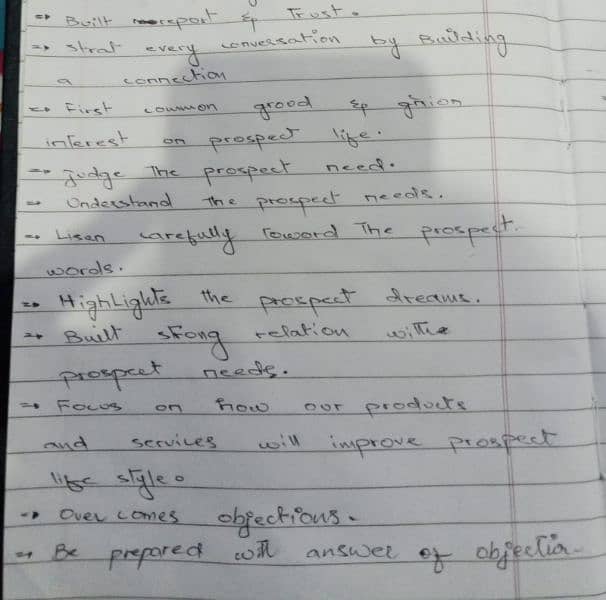 ⇒ Built report & Trust.
⇒ Strat every conversation by Building
a connection
⇒ First common grood & ghion
interest on prospect life.
⇒ judge The prospect need.
⇒ Understand the prospect needs.
⇒ Lisan carefully Toward The prospect.
words.
⇒ HighLights the prospect dreams.
⇒ Built stong relation with
prospect needs.
⇒ Focus on how our products
and services will improve prospect
life style.
⇒ Over comes objections.
⇒ Be prepared with answer of